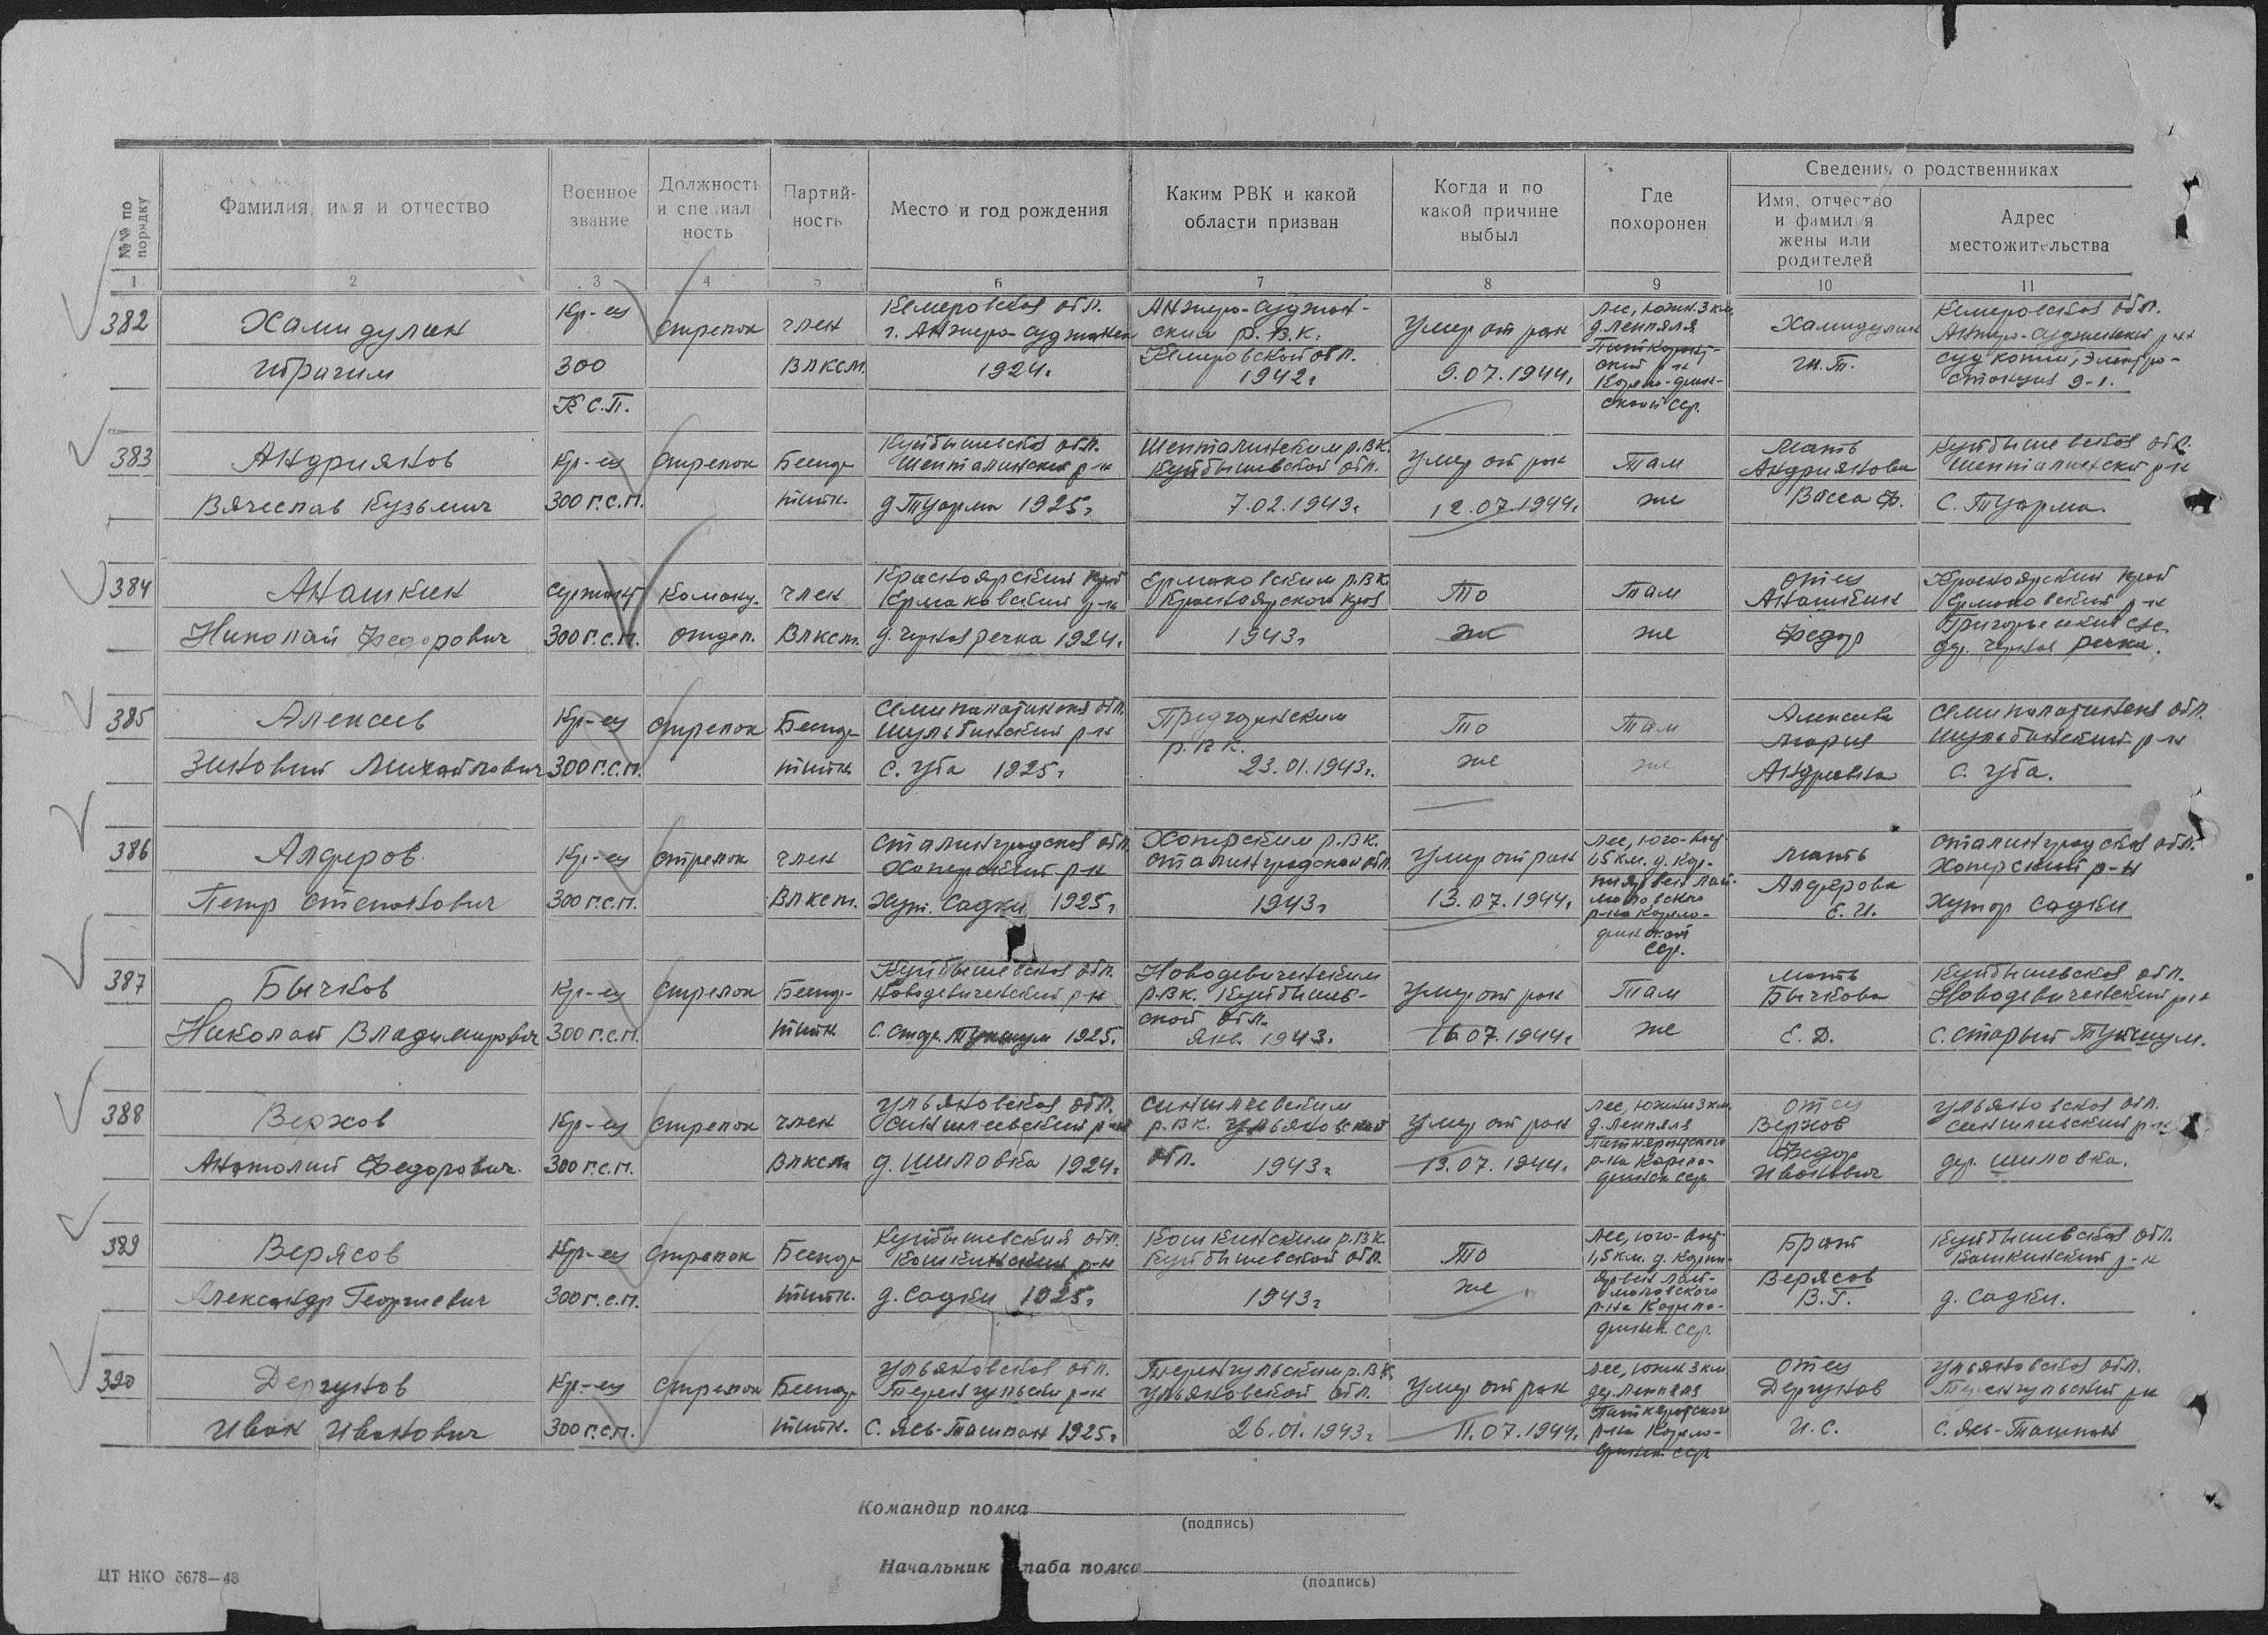 №№ по порядку
Фамилия, имя и отчество
Военное звание
Должность и специальность
Партийность
Место и год рождения
Каким РВК и какой области призван
Когда и по какой причине выбыл
Где похоронен
Сведения о родственниках
Имя, отчество и фамилия жены или родителей
Адрес местожительства
1 2 3 4 5 6 7 8 9 10 11
382
Хамидулин
Ибрагим
Кр-ец
300
стрелок
член
ВЛКСМ.
Кемеровская обл.
г. Анжеро-Суджинск
1924г
Анжеро-Суджен-
ским Р.В.К.
Кемеровской обл.
1942г
Умер от ран
9.07.1944г
Лес, южн. 3 км.
д. Леппяля
Питкярант-
ский р-н
Карело-фин-
ской сср.
Хамидулин
И.Т.
Кемеровская обл.
Анжеро-Судженский р-н
383
Андриянов
Вячеслав Кузьмич
Кр-ец
300 г.с.п.
стрелок
Беспар
тийн.
Куйбышевская обл.
Шенталинский р-н
д. Туарма 1925г
Шенталинским р.ВК.
Куйбышевской обл.
7.02.1943г
Умер от ран
12.07.1944г
Там
же
Мать
Андриянова
Васса Ф.
Куйбышевская обл.
Шенталинский р-н
С. Туарма.
384
Анашкин
Николай Федорович
Сержант
300 г.с.п.
Команд.
отдел.
член
ВЛКСМ.
Красноярский край
Ермаковский р-н
д. Черная речка 1924г
Ермаковским р.ВК
Красноярского края
1943г
То
же
Там
же
Отец
Анашкин
Федор
Красноярский край
Ермаковский р-н
Григорьевский с/с
дер. Черная речка.
385
Алексеев
Зиновий Михайлович
Кр-ец
300 г.с.п.
стрелок
Беспар
тийн
Семипалатинская обл.
Шульбинский р-н
С. Уба 1925г
р.ВК.
23.01.1943г.
То
же
Там
же
Алексеева
Мария
Андреевна
Семипалатинская обл.
Шульбинский р-н
С. Уба.
386
Алферов
Петр Степанович
Кр-ец
300 г.с.п.
стрелок
член
ВЛКСМ.
Сталинградская обл.
Хоперский р-н
Хут. Садки 1925г
Хоперским р.ВК.
Сталинградской обл.
1943г
Умер от ран
13.07.1944г
Лес, юго-вост.
1,5 км. д. Кор-
р-на Карело-
финской
сср.
Мать
Алферова
Е. И.
Сталинградская обл.
Хоперский р-н
Хутор Садки
387
Бычков
Николай Владимирович
Кр-ец
300 г.с.п.
стрелок
Беспар-
тийн
Куйбышевская обл.
Новодевиченский р-н
С. Стар. Тукшум 1925.
Новодевиченским
р.ВК. Куйбышев-
ской обл.
Янв. 1943г.
Умер от ран
16.07.1944г
Там
же
Мать
Бычкова
Е. Д.
Куйбышевская обл.
Новодевиченский р-н
С. Старый Тукшум.
388
Верхов
Анатолий Федорович.
Кр-ец
300 г.с.п.
стрелок
член
ВЛКСМ
Ульяновская обл.
Сингилеевский р-н
д. Шиловка 1924г
Сингилеевским
р.ВК. Ульяновской
обл. 1943г
Умер от ран
13.07.1944г.
Лес, южн 3 км.
д. Леппяля
Питкярантского
р-на Карело-
финск сср
Отец
Верхов
Федор
Иванович
Ульяновская обл.
Сингилеевский р-н
дер. Шиловка.
389
Верясов
Александр Георгиевич
Кр-ец
300 г.с.п.
стрелок
Беспар
тийн.
Куйбышевская обл.
Кошкинский р-н
д. Садки 1925г
Кошкинским р.ВК
Куйбышевской обл.
1943г
То
же
Лес, юго-вост
р-на Карело-
финск. сср.
Брат
Верясов
В.Г.
Куйбышевская обл.
Кошкинский р-н
д. Садки.
390
Дергунов
Иван Иванович
Кр-ец
300 г.с.п.
стрелок
Беспар
тийн.
Ульяновская обл.
Теренгульский р-н
С. Ясь-Ташлан 1925г
Теренгульским р.ВК
Ульяновской обл.
26.01.1943г
Умер от ран
11.07.1944г.
Лес, южн 3 км
дер. Леппяля
Питкярантского
р-на Карело-
финск сср
Отец
Дергунов
И.С.
Ульяновская обл.
Теренгульский р-н
С. Ясь-Ташлан
Командир полка
(подпись)
Начальник штаба полка
(подпись)
ЦТ НКО 5678—43